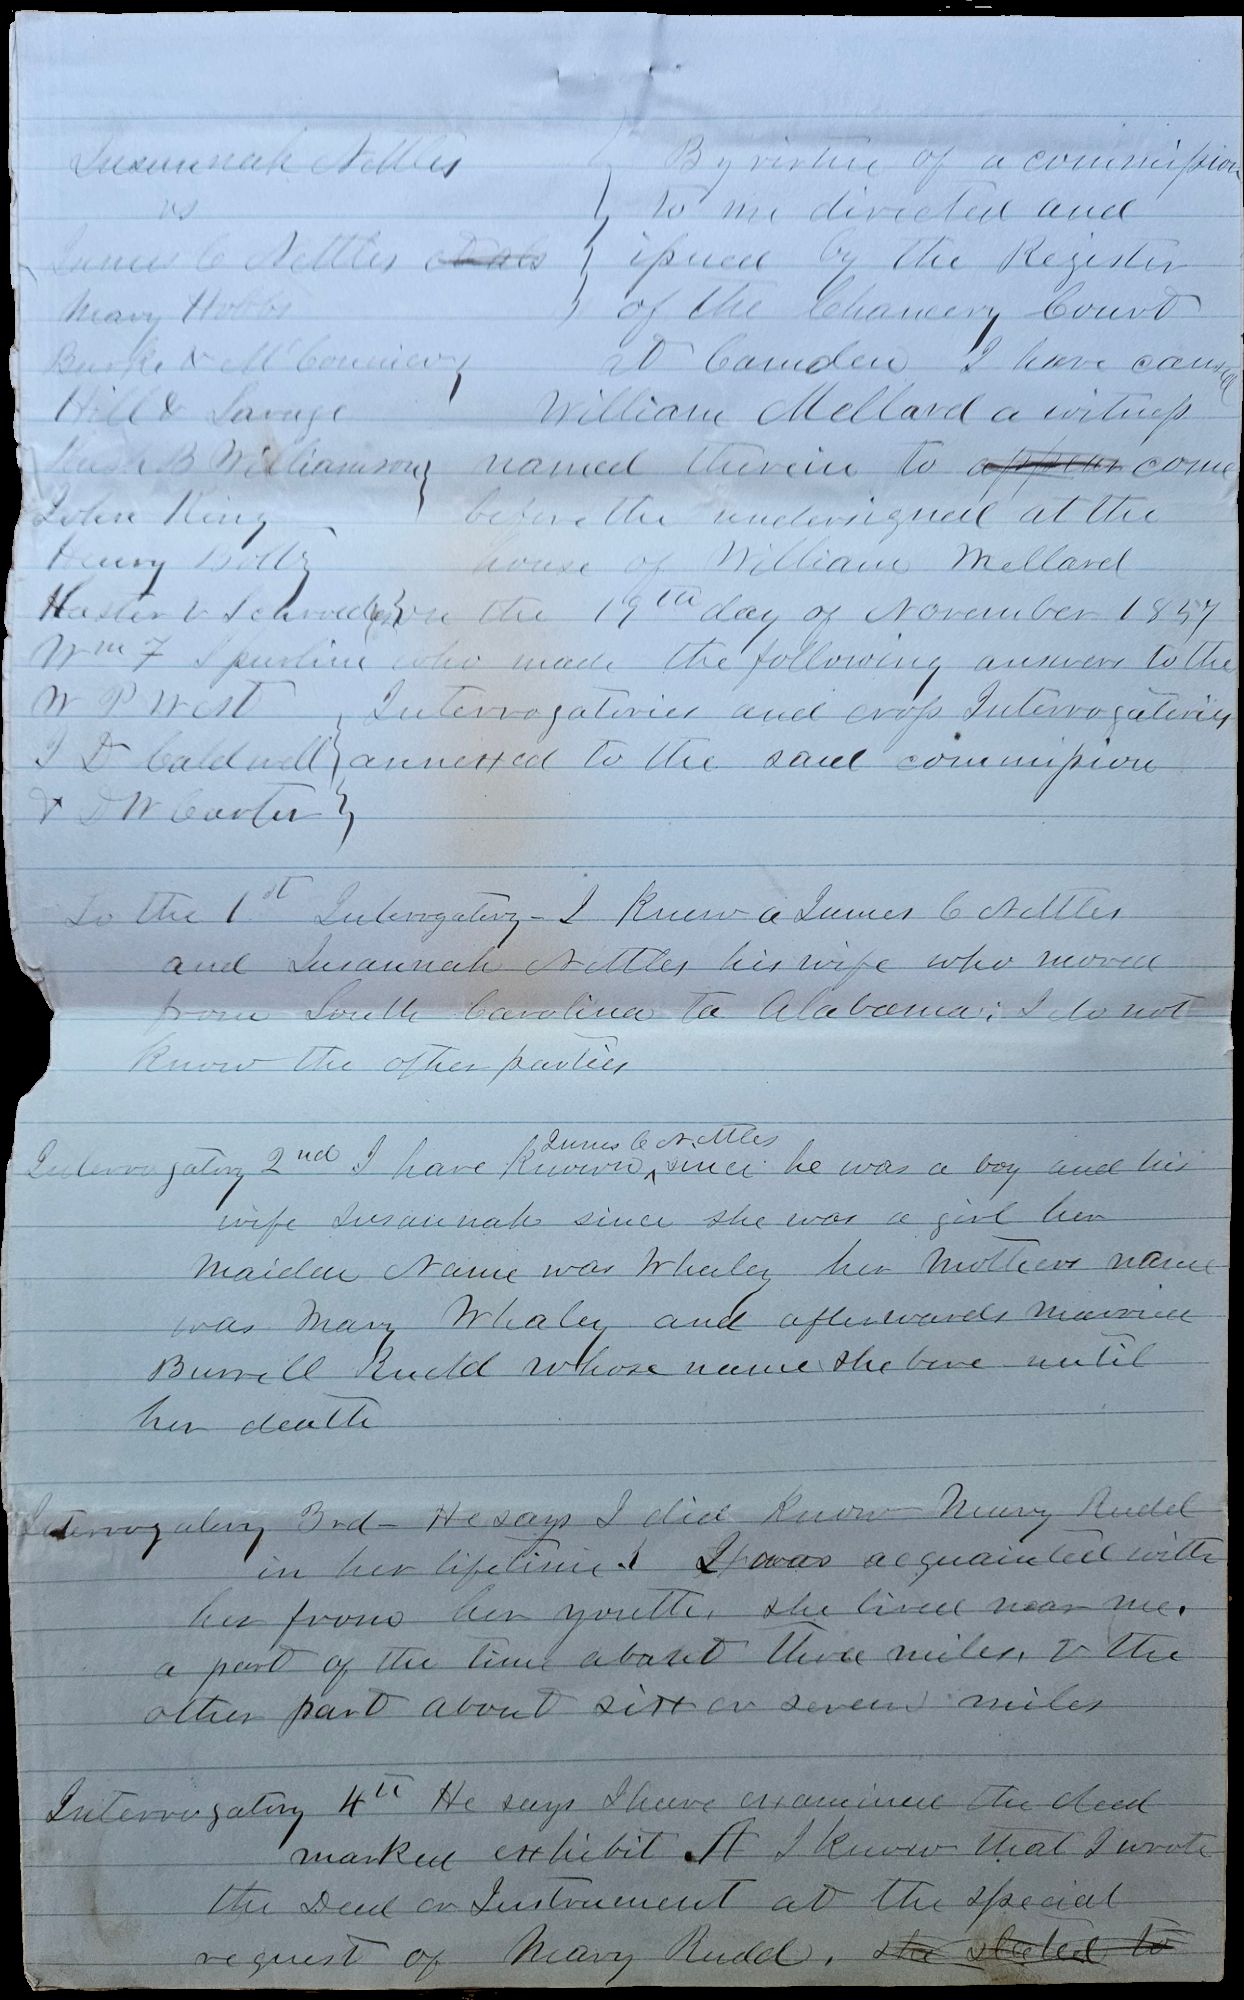 Susannah Nettles } By virtue of a commission
vs } to me directed and
James C Nettles et als } issued by the Register
Mary Hobbs } of the Chancery Court
Burke & McConnery at Camden I have caused
Hill & Savage William Mellard a witness
B Williamson } named therein to appear come
John King before the undersigned at the
Henry house of William Mellard
Haster & Schroeder } on the 19th day of November 1857
Wm F Spurline who made the following answers to the
W P West } Interrogatories and cross Interrogatories
J D Caldwell } annexed to the said commission
& D W Carter }
To the 1st Interrogatory - I knew a James C Nettles
and Susannah Nettles his wife who moved
from South Carolina to Alabama; I do not
know the other parties
Interrogatory 2nd I have known ^ James C Nettles since he was a boy and his
wife Susannah since she was a girl her
Maiden Name was Whaley her Mothers name
was Mary Whaley and afterwards married
Burrell Rudd whose name she bore until
her death
Interrogatory 3rd - He says I did know Mary Rudd
in her lifetime I was acquainted with
her from her youth. she lived near me.
a part of the time about three miles. & the
other part about six or seven miles
Interrogatory 4th He says I have examined the deed
marked exhibit A I know that I wrote
the Deed or Instrument at the special
request of Mary Rudd. she stated to